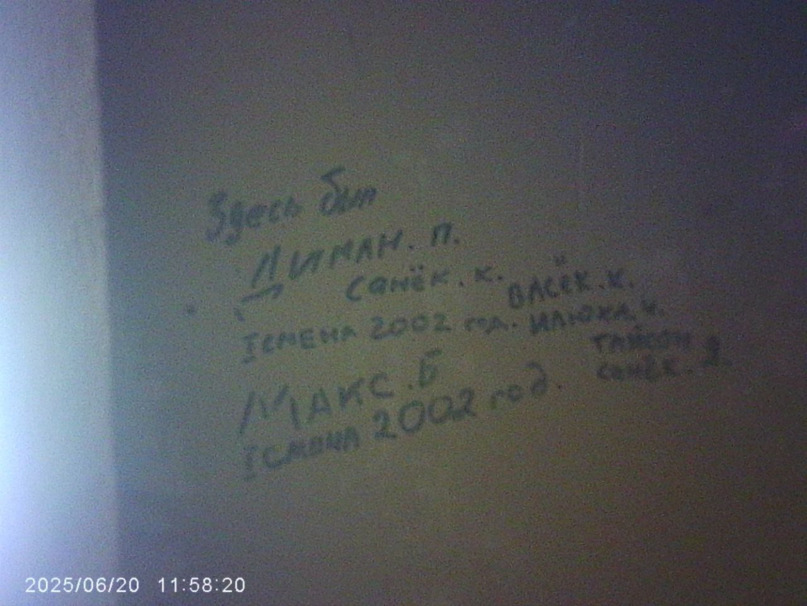 Здесь был
Диман. П.
Санёк. К. Васёк. К.
I смена 2002 год. Илюха. Ч.
Тайсон
Макс. Б Санёк. Я.
I смена 2002 год.
2025/06/20 11:58:20